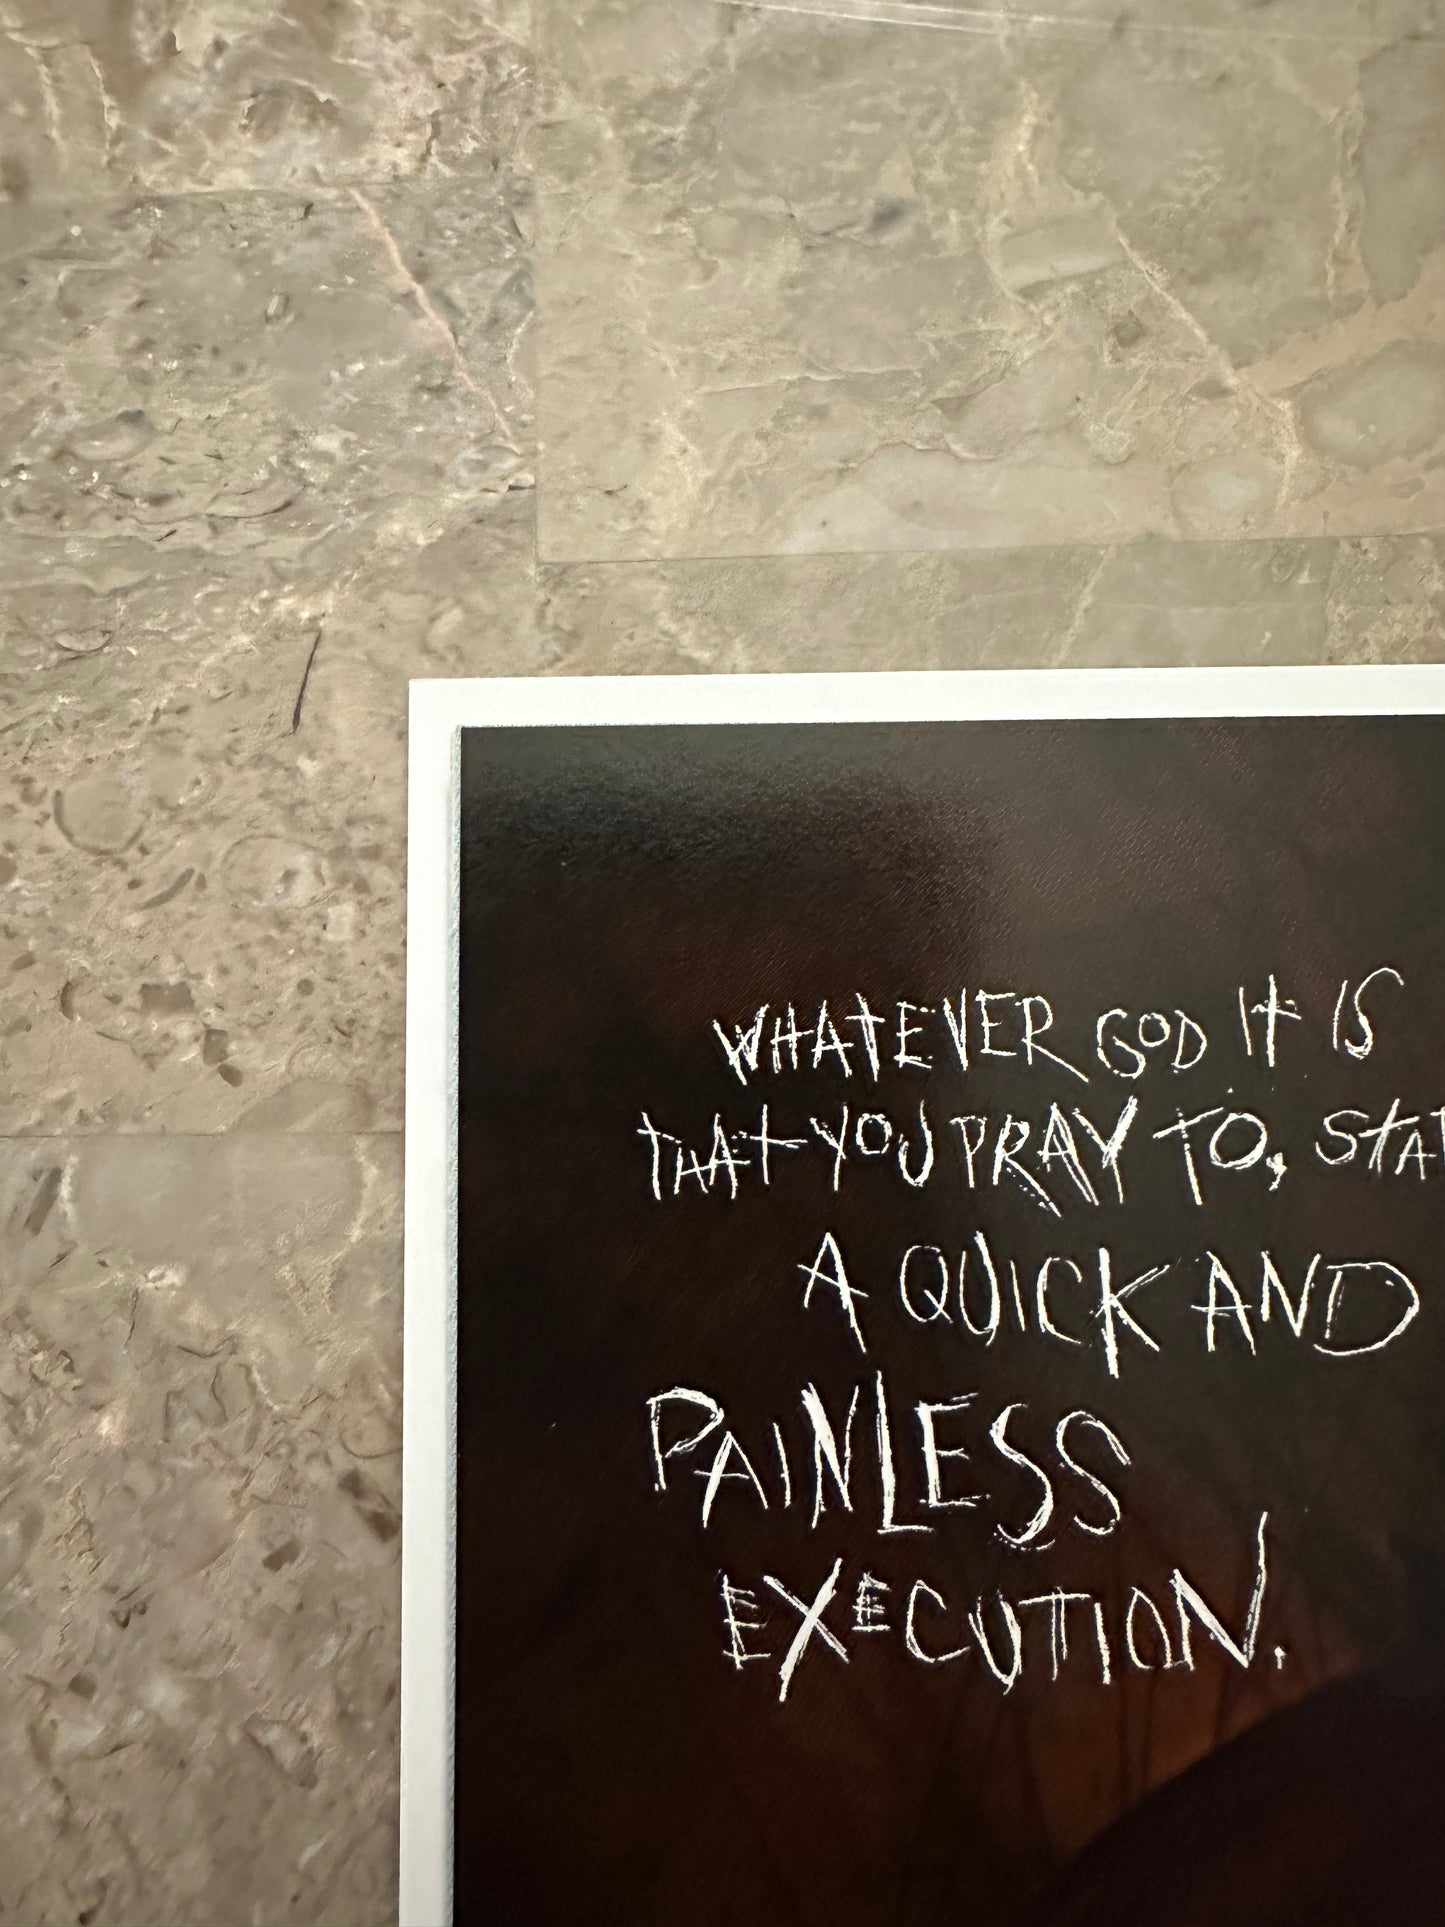 WHATEVER GOD IT IS
THAT YOU PRAY TO,
A QUICK AND
PAINLESS
EXECUTION.